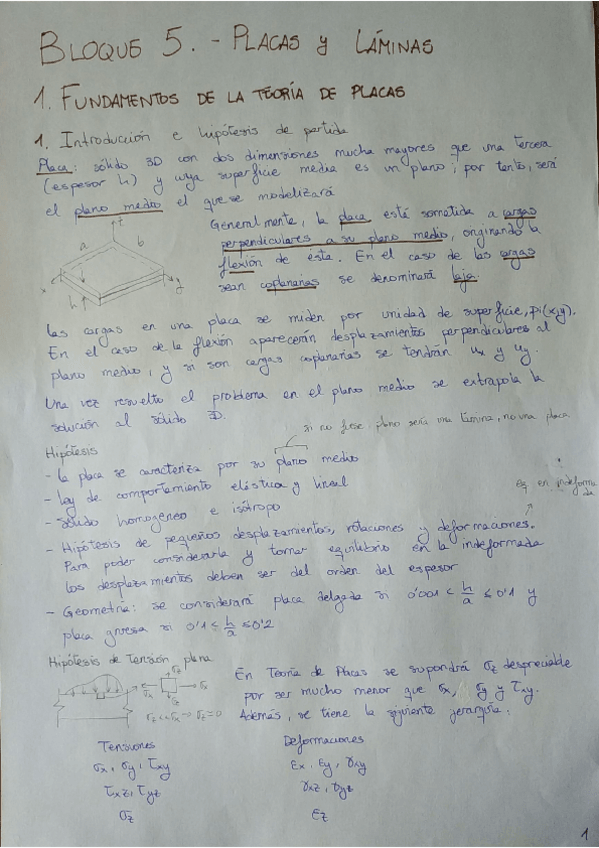 BLOQUE 5. - PLACAS y LÁMINAS
1. FUNDAMENTOS DE LA TEORÍA DE PLACAS
1. Introducción e hipótesis de partida
Placa: sólido 3D con dos dimensiones mucha mayores que una tercera
(espesor h) y cuya superficie media es un plano; por tanto, será
el plano medio el que se modelizará
Generalmente, la placa está sometida a cargas
perpendiculares a su plano medio, originando la
flexión de esta. En el caso de las cargas
sean coplanarias se denominará laja.
t
a
b
x
y
h
Las cargas en una placa se miden por unidad de superficie, pi(x,y).
En el caso de la flexión aparecerán desplazamientos perpendiculares al
plano medio, y si son cargas coplanarias se tendrán ux y uy.
Una vez resuelto el problema en el plano medio se extrapola la
solución al sólido 3D.
si no fuese plano sería una lámina, no una placa
Hipótesis
- La placa se caracteriza por su plano medio
- Ley de comportamiento elástica y lineal
- Sólido homogéneo e isótropo
eq en indeforma
da
- Hipótesis de pequeños desplazamientos, rotaciones y deformaciones.
Para poder considerarla y tomar equilibrio en la indeformada
los desplazamientos deben ser del orden del espesor
- Geometría: se considerará placa delgada si 0'001 < h/a ≤ 0'1 y
placa gruesa si 0'1 ≤ h/a ≤ 0'2
Hipótesis de Tensión plana
σz
σx
σx
σz << σx → σz = 0
En Teoría de Placas se supondrá σz despreciable
por ser mucho menor que σx, σy y τxy.
Además, se tiene la siguiente jerarquía:
Tensiones
Deformaciones
σx, σy, τxy
εx, εy, γxy
τxz, τyz
γxz, γyz
σz
εz
1